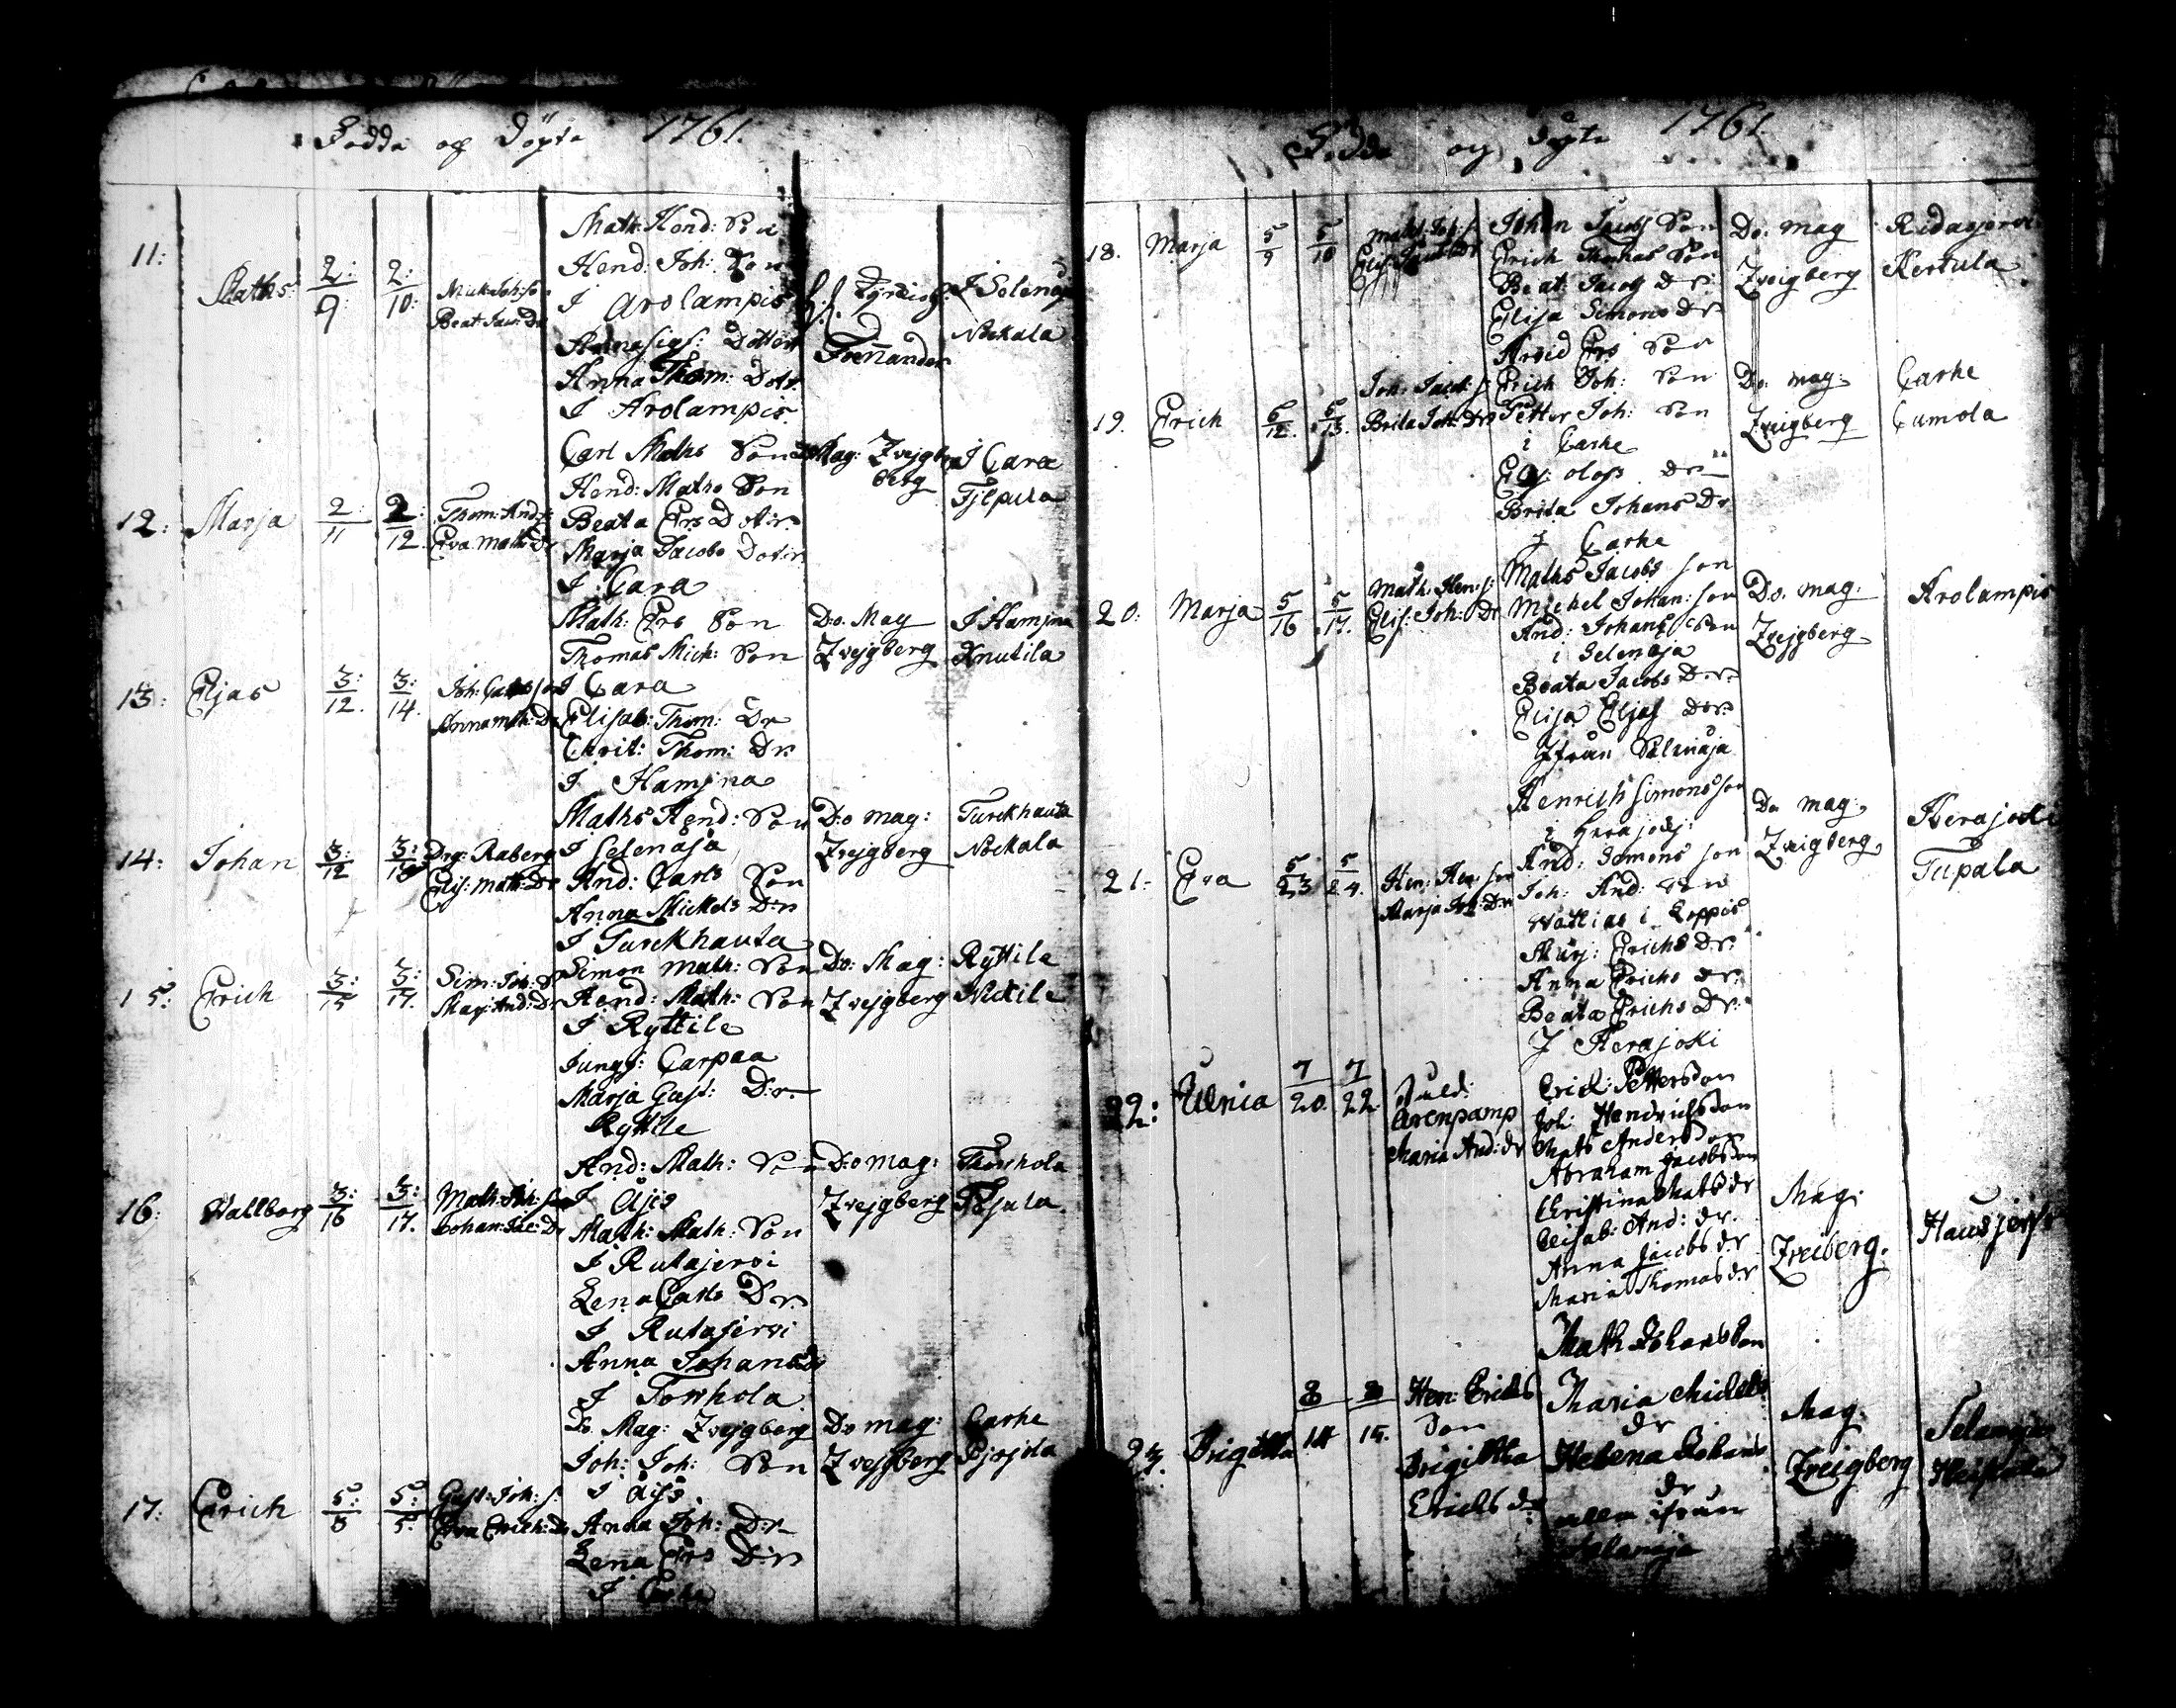 Födde og Döpte 1761.
11:
Maths
2:/9:
2:/10:
Mick: Joh: so
Beat: Jac: Dr
Math: Hend: Son
Hend: Joh: Son
J Arolampis
Anna Sigf: Dotter
Anna Thom: Dotr
J Arolampis
Forsander
J Selenaja
Nockala
12:
Marja
2:/11
2:/12.
Thom: And: s:
Eva Math: Dr
Carl Maths Son
Hend: Maths Son
Beata Ers Dotr
Marja Jacobs Dotr
J Cara
Mag: Zvejgberg
berg
J Cara
Tjlpula
13:
Eljas
3:/12.
3:/14.
Joh: Carls son
Anna Mth: Dr
Math: Ers Son
Thomas Mich: Son
J Cara
Elisab: Thom: Dr
Christ: Thom: Dr
J Hamjna
Do. Mag
Zvejgberg
J Hamjna
Knutila
14:
Johan
3:/12
3:
Drg: Raberg
Elis: Math: Dr
Maths Hend: Son
J Selenaja
And: Carls Son
Anna Mickels Dr
J Turckhauta
D:o mag:
Zvejgberg
Turckhauta
Nockala
15:
Erich
3:/15
3:/17.
Sim: Joh: S
Marj: And: Dr
Simon Math: Son
Hend: Math: Son
J Ryttile
Jungf: Carpaa
Marja Gust: D:r
Ryttile
Do: Mag:
Zvejgberg
Ryttile
Nickile
16:
Vallborg
3:/16
3:/17.
Math: Joh: son
Johan: Jac: Dr
And: Math: Son
J Äijs
Math: Math: Son
J Rutajervi
Lena Carls Dr
J Rutajervi
Anna Johans Dr
J Torvhola
D:o mag:
Zvejgberg
Torvhola
17.
Erich
5:/5
5:/5.
Gust: Joh: s:
Eva Erich: Dr
Do Mag: Zvejgberg
Joh: Joh: Son
J Äijs
Anna Joh: Dr
Lena Ers Dr
Do mag:
Zvejgberg
Carhe
Födde og Döpte 1761.
18.
Marja
5/9
5/10
Maths Joh: s:
Elis: Jacobs Dr
Johan Jacobs Son
Erich Thomas Son
Beat: Jacobs Dr
Elisa Simons Dr
Do. mag
Zveigberg
Ridasjervi
Kertula
19.
Erich
5/12.
5/13.
Joh: Jacob: s:
Brita Joh: Dr
Arvid Ers Son
Erich Joh: Son
Petter Joh: Son
i Carhe
Elis: Olofs Dr
Brita Johans Dr
J Carhe
Do. mag:
Zveigberg
Carhe
Cumola
20:
Marja
5/16
5/17.
Math: Hen: s:
Elis: Joh: Dr
Maths Jacobs son
Michel Johan: son
And: Johans Son
i Selenaja
Beata Jacobs Dr
Elisa Eljas Dr
Ifrån Selenaja
Do. mag:
Zvejgberg
Arolampis
21:
Eva
5/23
5/24.
Hen: Hen: son
Marja Joh: Dr
Henrich Simons son
i Herajokj:
And: Simons son
Joh: And: son
Mattias i Loppis
Marj: Erichs Dr:
Anna Erichs Dr:
Beata Erichs Dr:
J Herajoki
Do mag:
Zveigberg
Herajoki
Tupala
22:
Ulrica
7/20.
7/22
Arenpamp
Maria And: dr
Erick: Pettersson
Joh: Hendrichsson
Mats Andersson
Abraham Jacobsson
Christina Mats dr
Elisab: And: dr.
Anna Jacobs dr
Maria Thomas dr
Mag:
Zveiberg.
Hausjervi
23.
Brigitta
8/14
8/15.
Hen: Ericks
Son
Brigittha
Ericks dr
Math Johansson
Maria Mickels
dr
Helena Johans
dr
alla ifrån
Selanaja
Mag:
Zveigberg
Selanaja